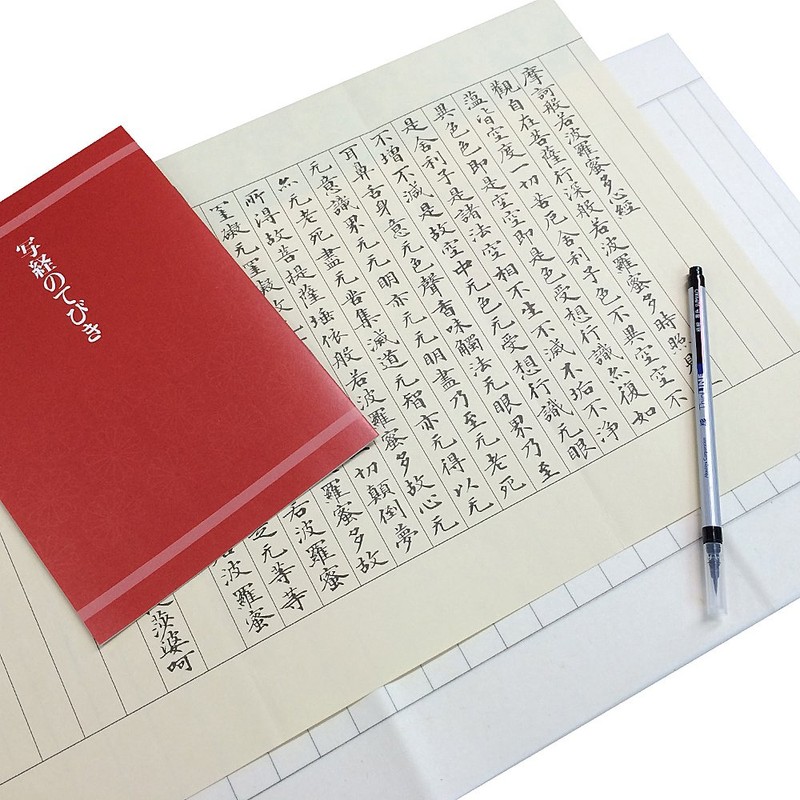 写経のてびき
摩訶般若波羅蜜多心經
觀自在菩薩行深般若波羅蜜多時照見
蘊皆空度一切苦厄舍利子色不異空空不
異色色即是空空即是色受想行識亦復如
是舍利子是諸法空相不生不滅不垢不淨
不增不減是故空中无色无受想行識无眼
耳鼻舌身意无色聲香味觸法无眼界乃至
无意識界无无明亦无无明盡乃至无老死
亦无老死盡无苦集滅道无智亦无得以无
所得故菩提薩埵依般若波羅蜜多故心无
罣礙无罣礙故无 切顛倒夢
羅蜜多故
若波羅蜜
无等等
波羅蜜
莎婆呵